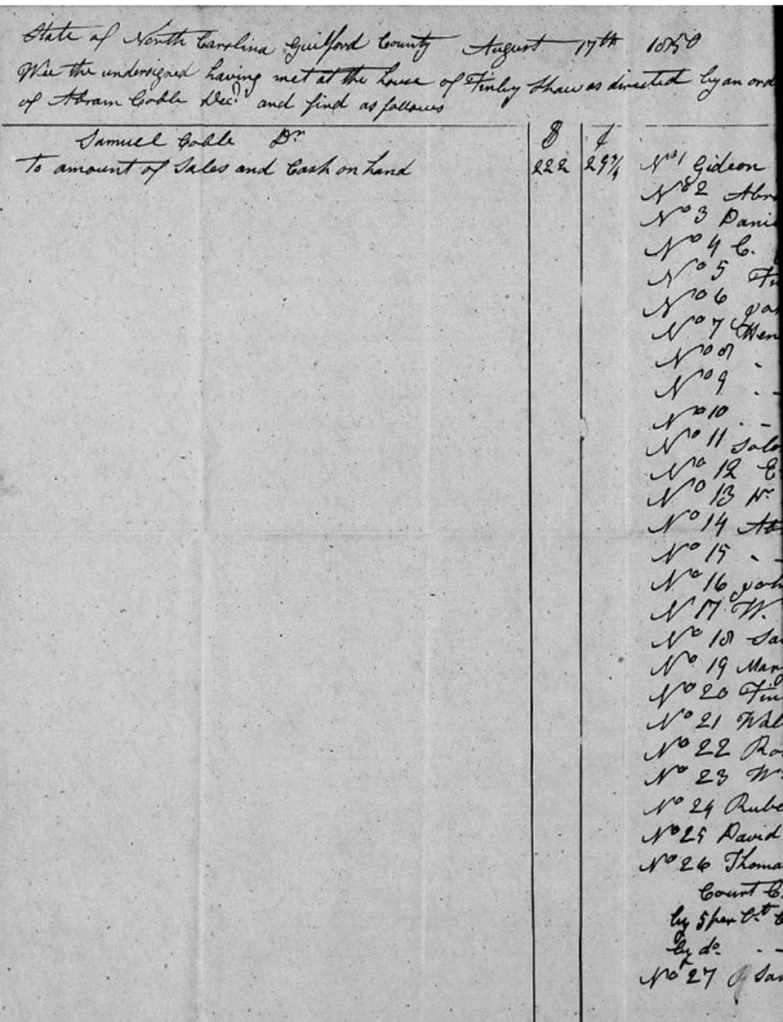 State of North Carolina Guilford County August 17th 1850
Wee the undersigned having met at the house of Finley Shaw as directed by an ord
of Abram Coble Decd and find as follows
Samuel Coble Dr $ ¢
To amount of Sales and Cash on hand 222 29¾
No 1 Gideon
No 2 Abra
No 3 Danie
No 4 C.
No 5 Fin
No 6
No 7 Hen
No 8
No 9 - -
No 10 - -
No 11 Solo
No 12 E
No 13 W.
No 14 Ab
No 15 - -
No 16 Joh
N 17 W.
No 18 Sa
No 19 Marg
No 20 Fin
No 21 Will
No 22 Ro
No 23 W
No 24 Rube
No 25 David
No 26 Thoma
Court C
by 5 per Ct C
by do - -
No 27 San